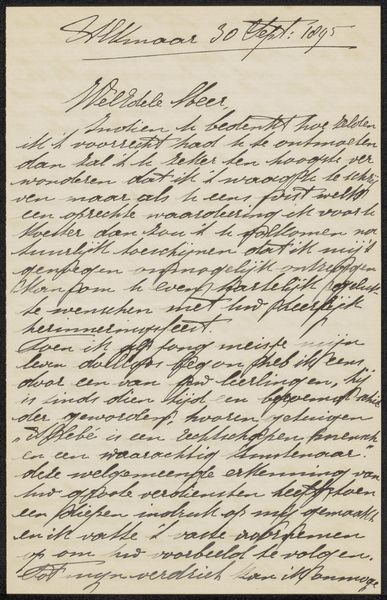 Alkmaar 30 Sept: 1895
WelEdele Heer,
Indien U bedenkt hoe zelden
ik 't voorrecht had U te ontmoeten
dan zal 't U zeker ten hoogste ver
wonderen dat ik 't waag U te schrij
ven maar als U eens wist welke
een oprechte waardeering ik voor U
koester dan zou 't U volkomen na
tuurlijk toeschijnen dat ik mij 't
genoegen onmogelijk ontzeggen
kan om U even hartelijk geluk
te wenschen met Uw heerlijk
herinneringsfeest.
Toen ik als jong meisje mijn
leven begon heb ik eens
door een van Uw leerlingen, hij
is sinds dien tijd een beroemd schil
der geworden, hooren getuigen
"Allebé is een rechtschapen mensch
en een waarachtig kunstenaar."
deze welgemeende erkenning van
Uw groote verdiensten heeft toen
een diepen indruk op mij gemaakt
en ik vatte 't vaste voornemen
op om Uw voorbeeld te volgen.
Tot mijn verdriet kan ik